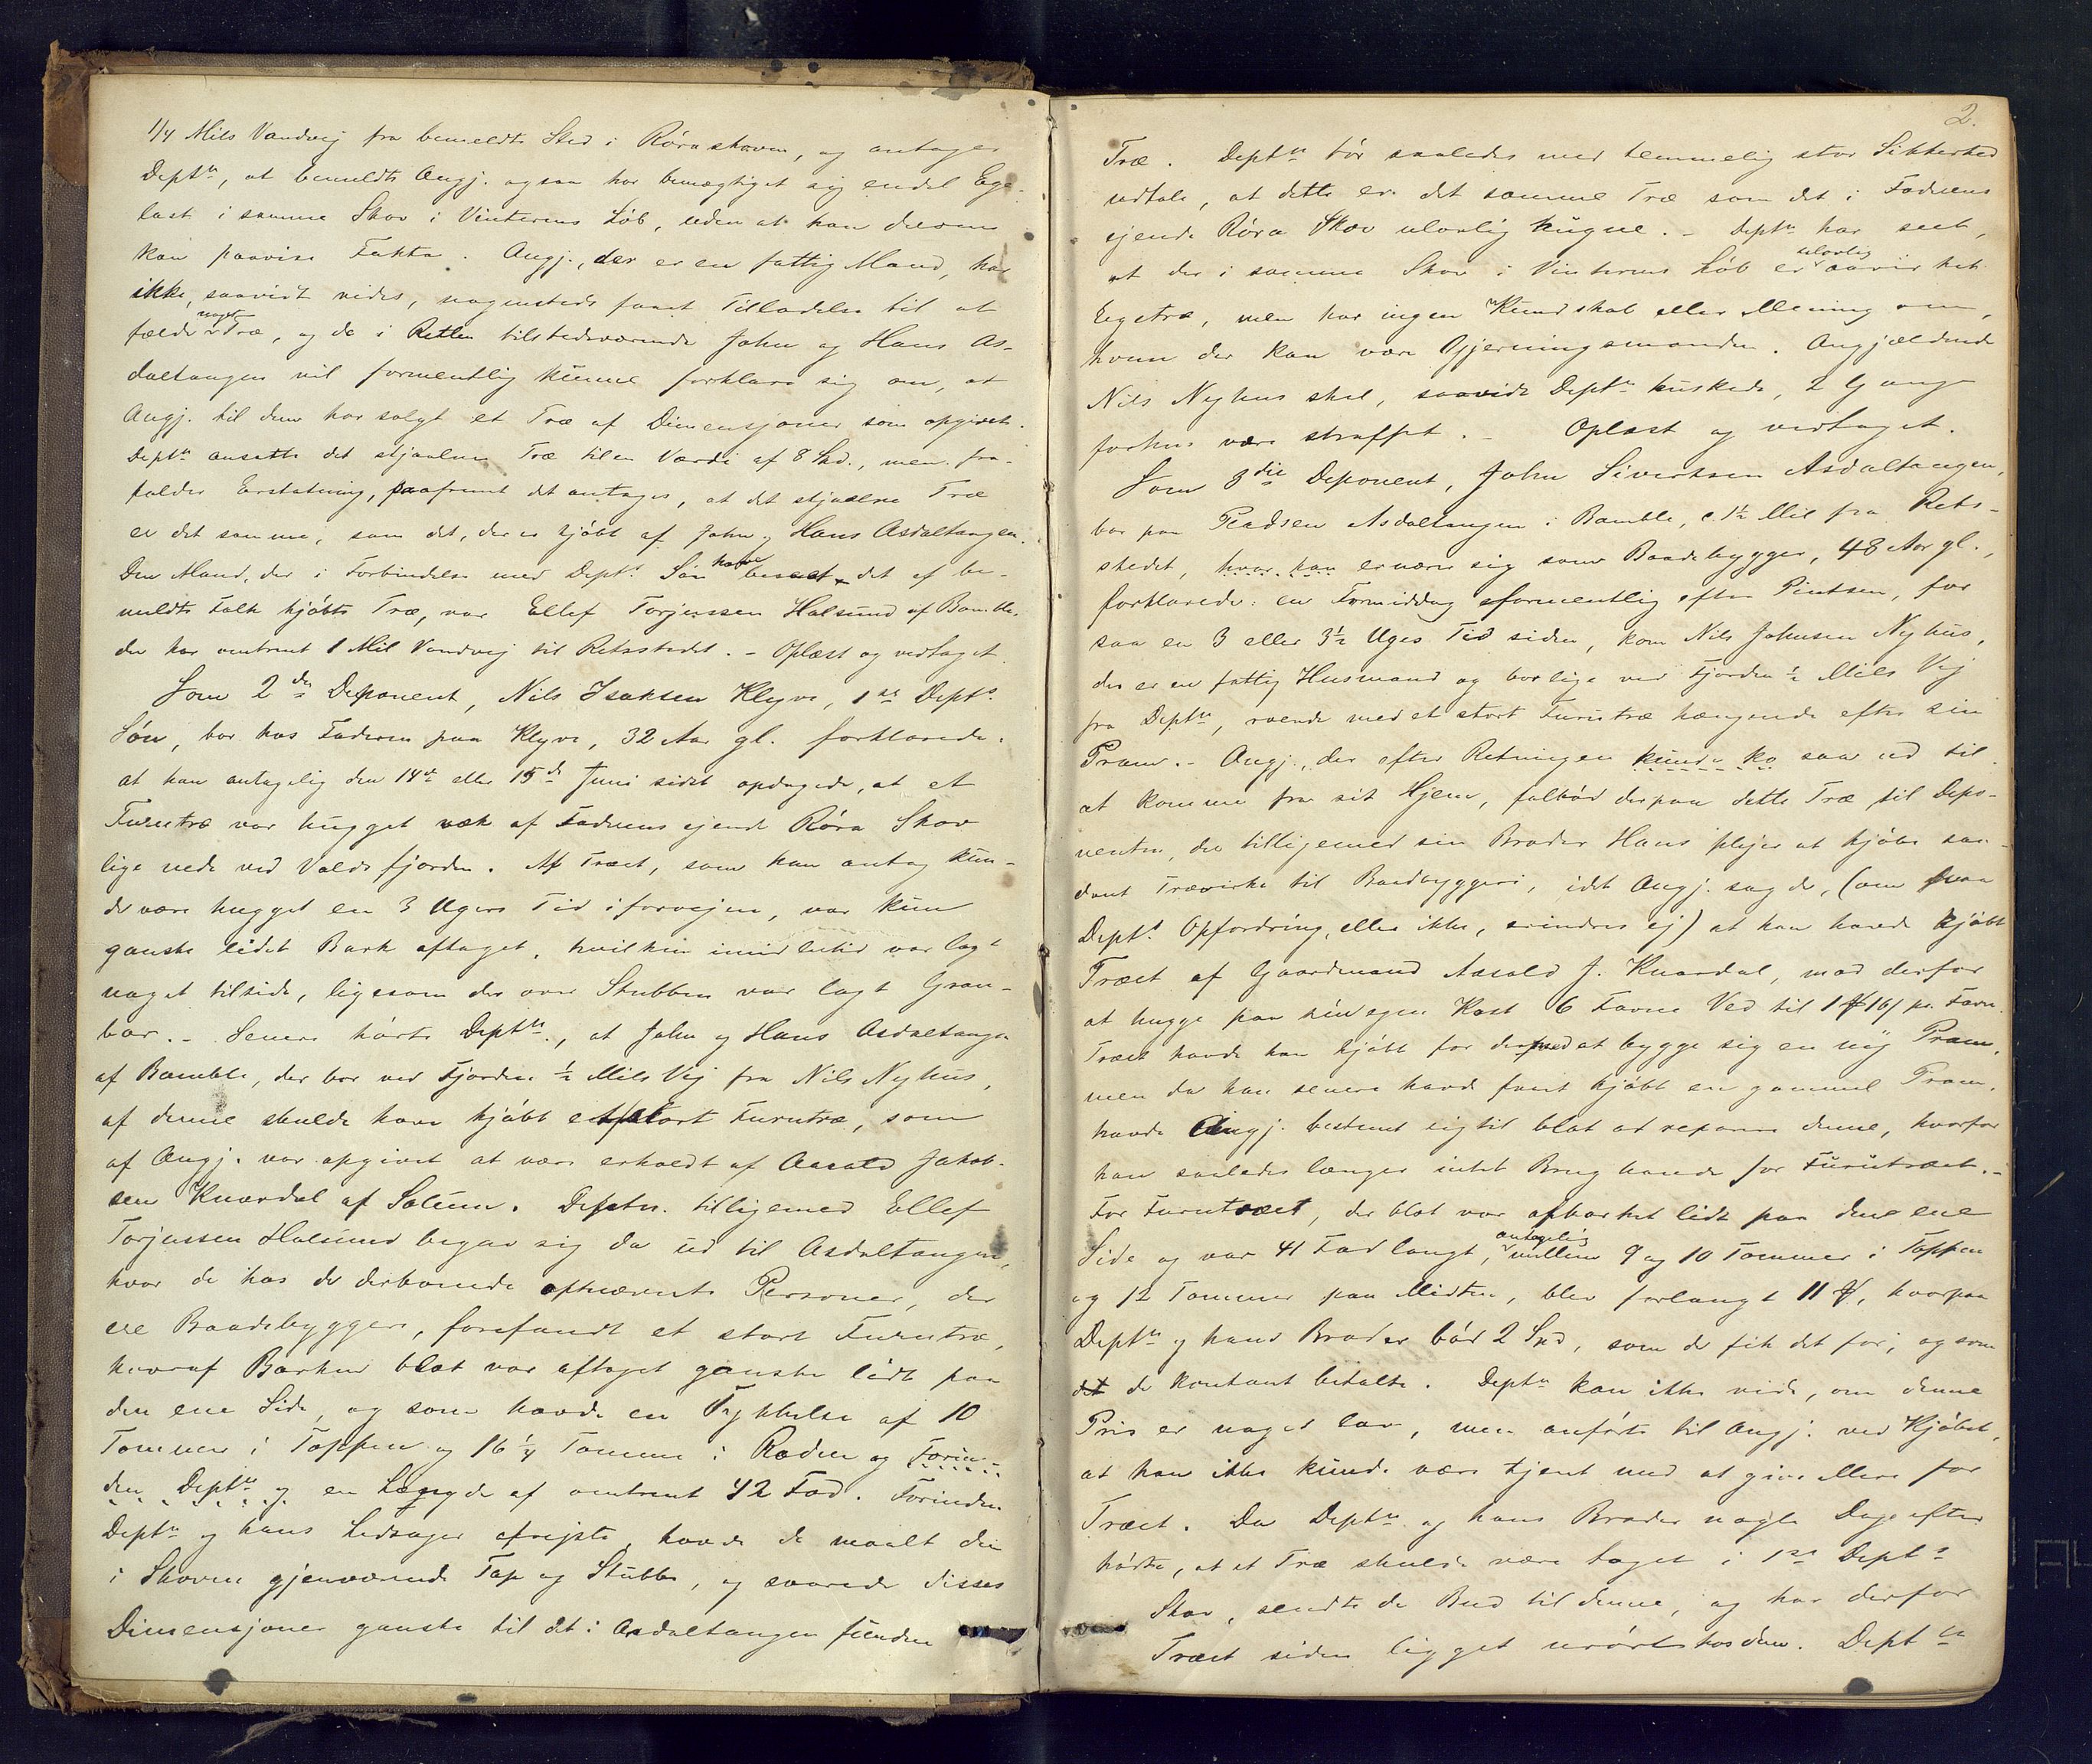 1/4 Mils Vandvej fra bemeldte Sted i Röraskoven, og antager
Deptn, at bemeldte Angj. ogsaa har bemægtiget sig endel Ege-
last i samme Skov i Vinterens Löb, uden at han derom
kan paavise Fakta. Angj., der er en fattig Mand, har
ikke, saavidt vides, nogensteds faaet Tilladelse til at
fælde noget Træ, og de i Retten tilstedeværende John og Hans As-
daltangen vil formentlig kunne forklare sig om, at
Angj. til dem har solgt et Træ af Dimensjoner som opgivet.
Deptn ansatte det stjaalne Træ til en Værdi af 8 Spd., men fra-
falder Erstatning, saafremt det antages, at det stjaalne Træ
er det samme, som det, der er kjöbt af John og Hans Asdaltangen.
Den Mand, der i Forbindelse med Depts Sön havde beseet det af be-
meldte Folk kjöbte Træ, var Ellef Torjussen Halsund af Bamble,
der har omtrent 1 Mil Vandvej til Retsstedet. - Oplæst og vedtaget.
Som 2den Deponent, Nils Isaksen Klyve, 1ste Depts
Sön, bor hos Faderen paa Klyve, 32 Aar gl. forklarede:
at han antagelig den 14de eller 15de Juni sidst opdagede, at et
Furutræ var hugget væk af Faderens ejende Röra Skov
lige nede ved Voldsfjorden. Af Træet, som han antog kun-
de være hugget en 3 Ugers Tid iforvejen, var kun
ganske lidet Bark aftaget, hvilken imidlertid var lagt
noget tilside, ligesom der over Stubben var lagt Gran-
bar. - Senere hörte Deptn., at John og Hans Asdaltangen
af Bamble, der bor ved Fjorden 1/2 Mils Vej fra Nils Nyhus,
af denne skulde have kjöbt et stort Furutræ, som
af Angj. var opgivet at være erholdt af Aasold Jakob-
sen Knardal af Solum. Deptn. tilligemed Ellef
Torjussen Halsund begav sig da ud til Asdaltangen,
hvor de hos de derboende ofnævnte Personer, der
ere Baadebyggere, forefandt et stort Furutræ,
hvoraf Barken blot var aftaget ganske lidt paa
den ene Side, og som havde en Tykkelse af 10
Tommer i Toppen og 16 1/4 Tomme i Roden og Forin-
den Deptn og en Længde af omtrent 42 Fod. Forinden
Deptn og hans Ledsager afrejste, havde de maalt den
i Skoven gjenværende Top og Stubbe, og svarede disses
Dimensjoner ganske til det i Asdaltangen fundne
2.
Træ. Deptn tör saaledes med temmelig stor Sikkerhed
udtale, at dette er det samme Træ som det i Faderens
ejende Röra Skov ulovlig hugne. - Deptn har seet,
at der i samme Skov i Vinterens Löb er ulovlig aavirket
Egetræ, men har ingen Kundskab eller Mening om,
hvem der kan være Gjerningsmanden. Angjældende
Nils Nyhus skal, saavidt Deptn huskede, 2 Gange
forhen være straffet. - Oplæst og vedtaget.
Som 3die Deponent, John Sivertsen Asdaltangen,
bor paa Pladsen Asdaltangen i Bamble, c. 1 1/2 Mil fra Rets-
stedet, hvor han ernærer sig som Baadebygger, 48 Aar gl.,
forklarede: en Formiddag formentlig efter Pintsen, for
saa en 3 eller 3 1/2 Uges Tid siden, kom Nils Johnsen Nyhus,
der er en fattig Husmand og bor lige ved Fjorden 1/2 Mils Vej
fra Deptn, roende med et stort Furutræ hængende efter sin
Pram. - Angj., der efter Retningen kunde ko saa ud til
at komme fra sit Hjem, falböd derpaa dette Træ til Depo-
nenten, der tilligemed sin Broder Hans plejer at kjöbe saa-
dant Trævirke til Baadbyggeri, idet Angj. sagde, (om paa
Depts Opfordring, eller ikke, erindres ej) at han havde kjöbt
Træet af Gaardmand Aasold J. Knardal, mod derfor
at hugge paa sin egen Kost 6 Favne Ved til 1 # 16 / pr. Favn.
Træet havde han kjöbt for dermed at bygge sig en ny Pram,
men da han senere havde faaet kjöbt en gammel Pram,
havde Angj. bestemt sig til blot at reparere denne, hvorfor
han saaledes længer intet Brug havde for Furutræet. -
For Furutræet, der blot var afbarket lidt paa den ene
Side og var 41 Fod langt, antagelig mellem 9 og 10 Tommer i Toppen
og 12 Tommer paa Midten, blev forlangt 11 #, hvorpaa
Deptn og hans Broder böd 2 Spd, som de fik det for, og som
det de kontant betalte. Deptn kan ikke vide, om denne
Pris er noget lav, men anförte til Angj. ved Kjöbet,
at han ikke kunde være tjent med at give Mere for
Træet. Da Deptn og hans Broder nogle Dage efter
hörte, at et Træ skulde være taget i 1ste Depts
Skov, sendte de Bud til denne, og har derfor
Træet siden ligget urört hos dem. Deptn